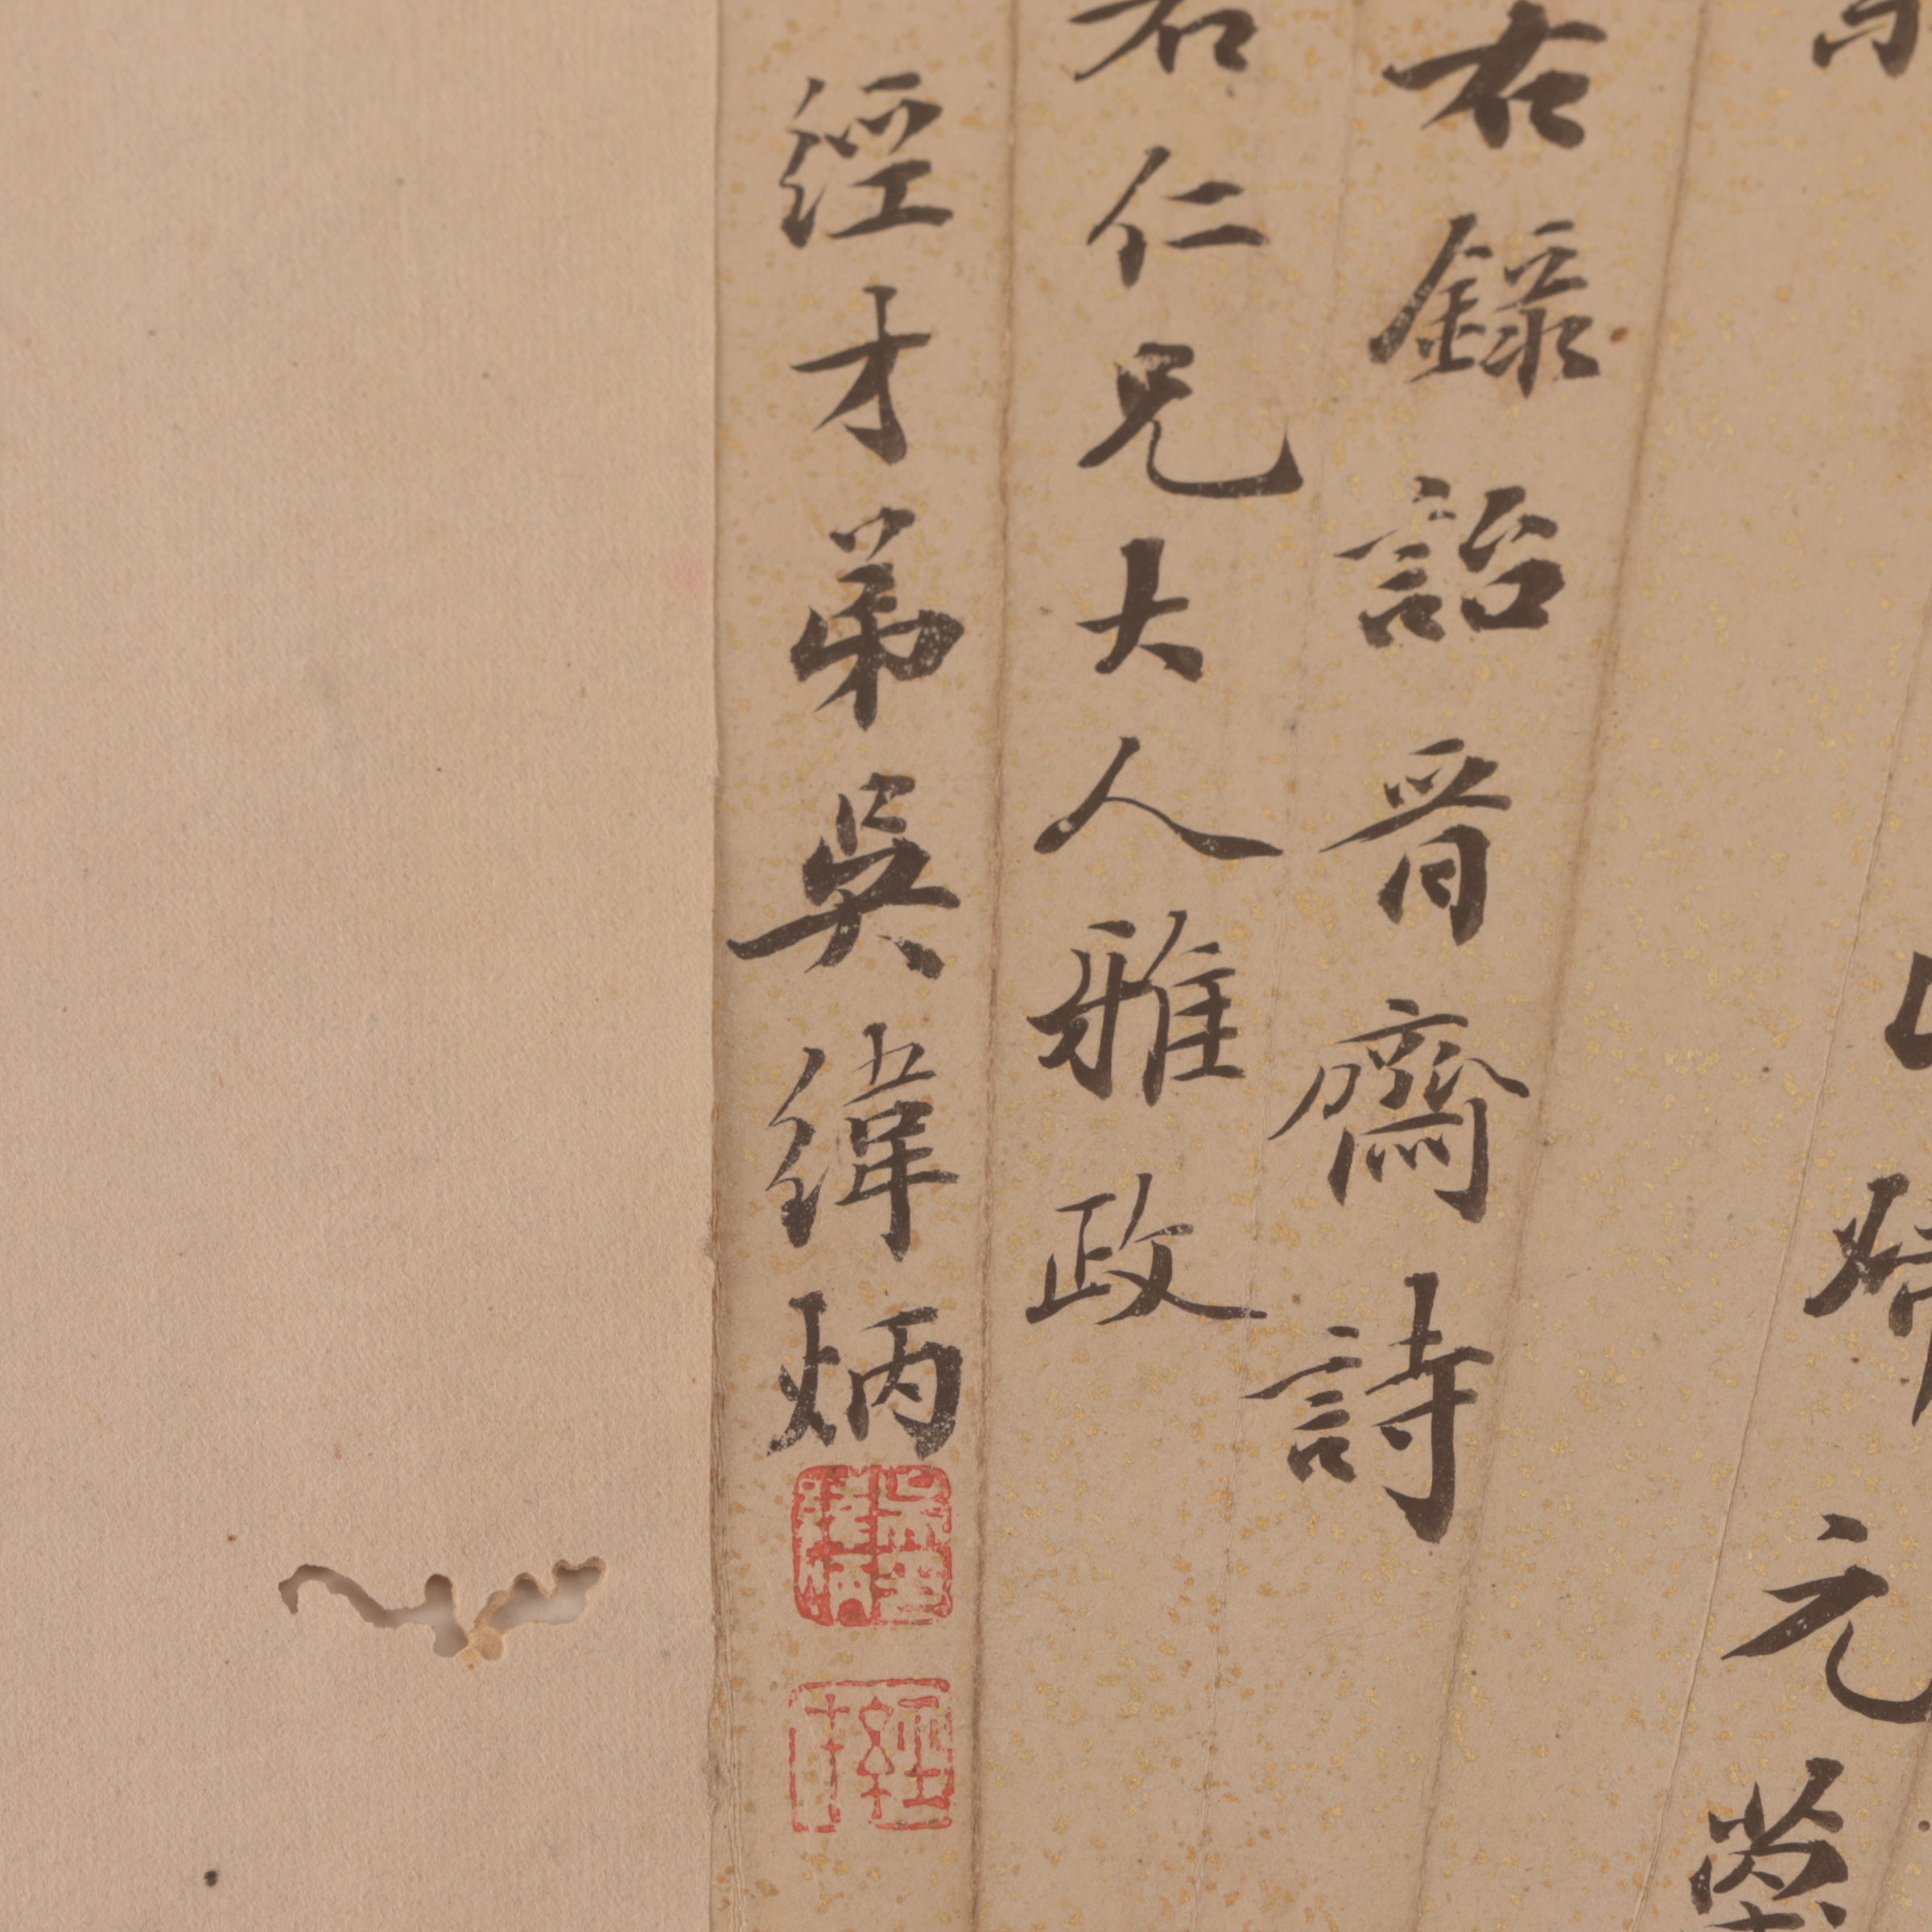 婦元
右錄詒晉齋詩
石仁兄大人雅政
經才弟吳緯炳
吳緯炳印
經才